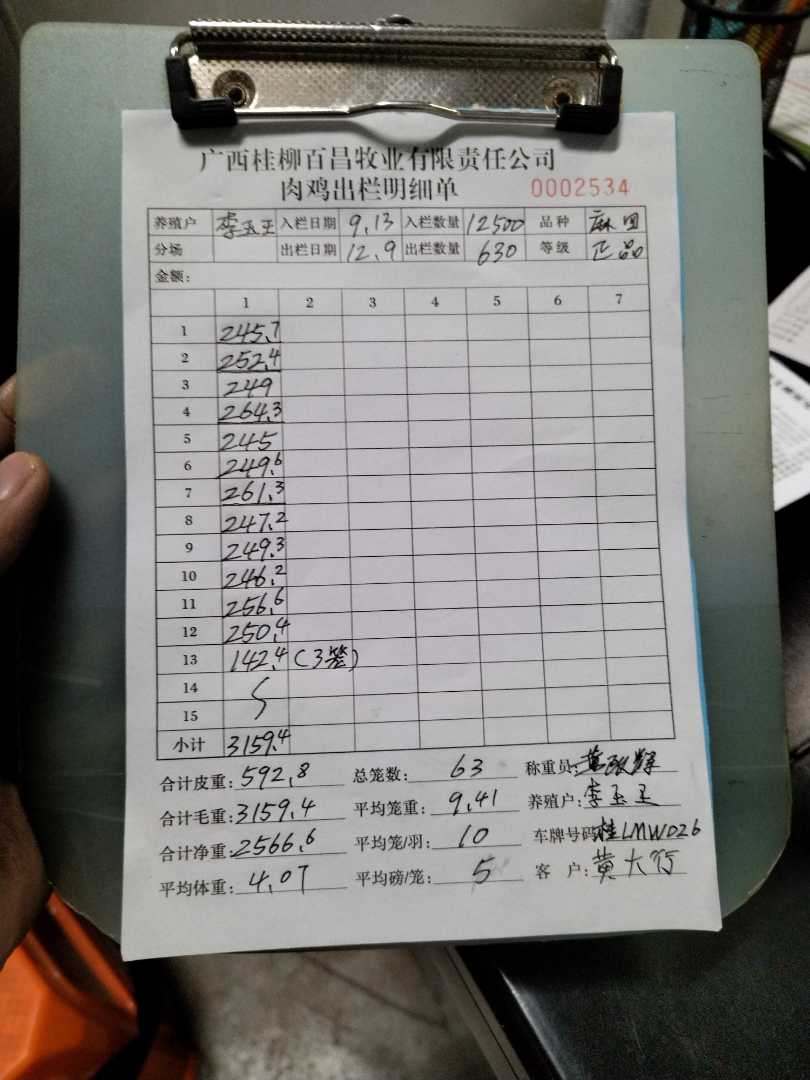 广西桂柳百昌牧业有限责任公司
肉鸡出栏明细单 0002534
养殖户 李玉王 入栏日期 9.13 入栏数量 12500 品种 麻
分场 出栏日期 12.9 出栏数量 630 等级 正品
金额:
1 2 3 4 5 6 7
1 245.7
2 252.4
3 249
4 264.3
5 245
6 249.6
7 261.3
8 247.2
9 249.3
10 246.2
11 256.6
12 250.4
13 142.4 (3笼)
14
15
小计 3159.4
合计皮重: 592.8 总笼数: 63 称重员: 黄
合计毛重: 3159.4 平均笼重: 9.41 养殖户: 李玉王
合计净重: 2566.6 平均笼/羽: 10 车牌号码: 桂LMW026
平均体重: 4.07 平均磅/笼: 5 客 户: 黄大行